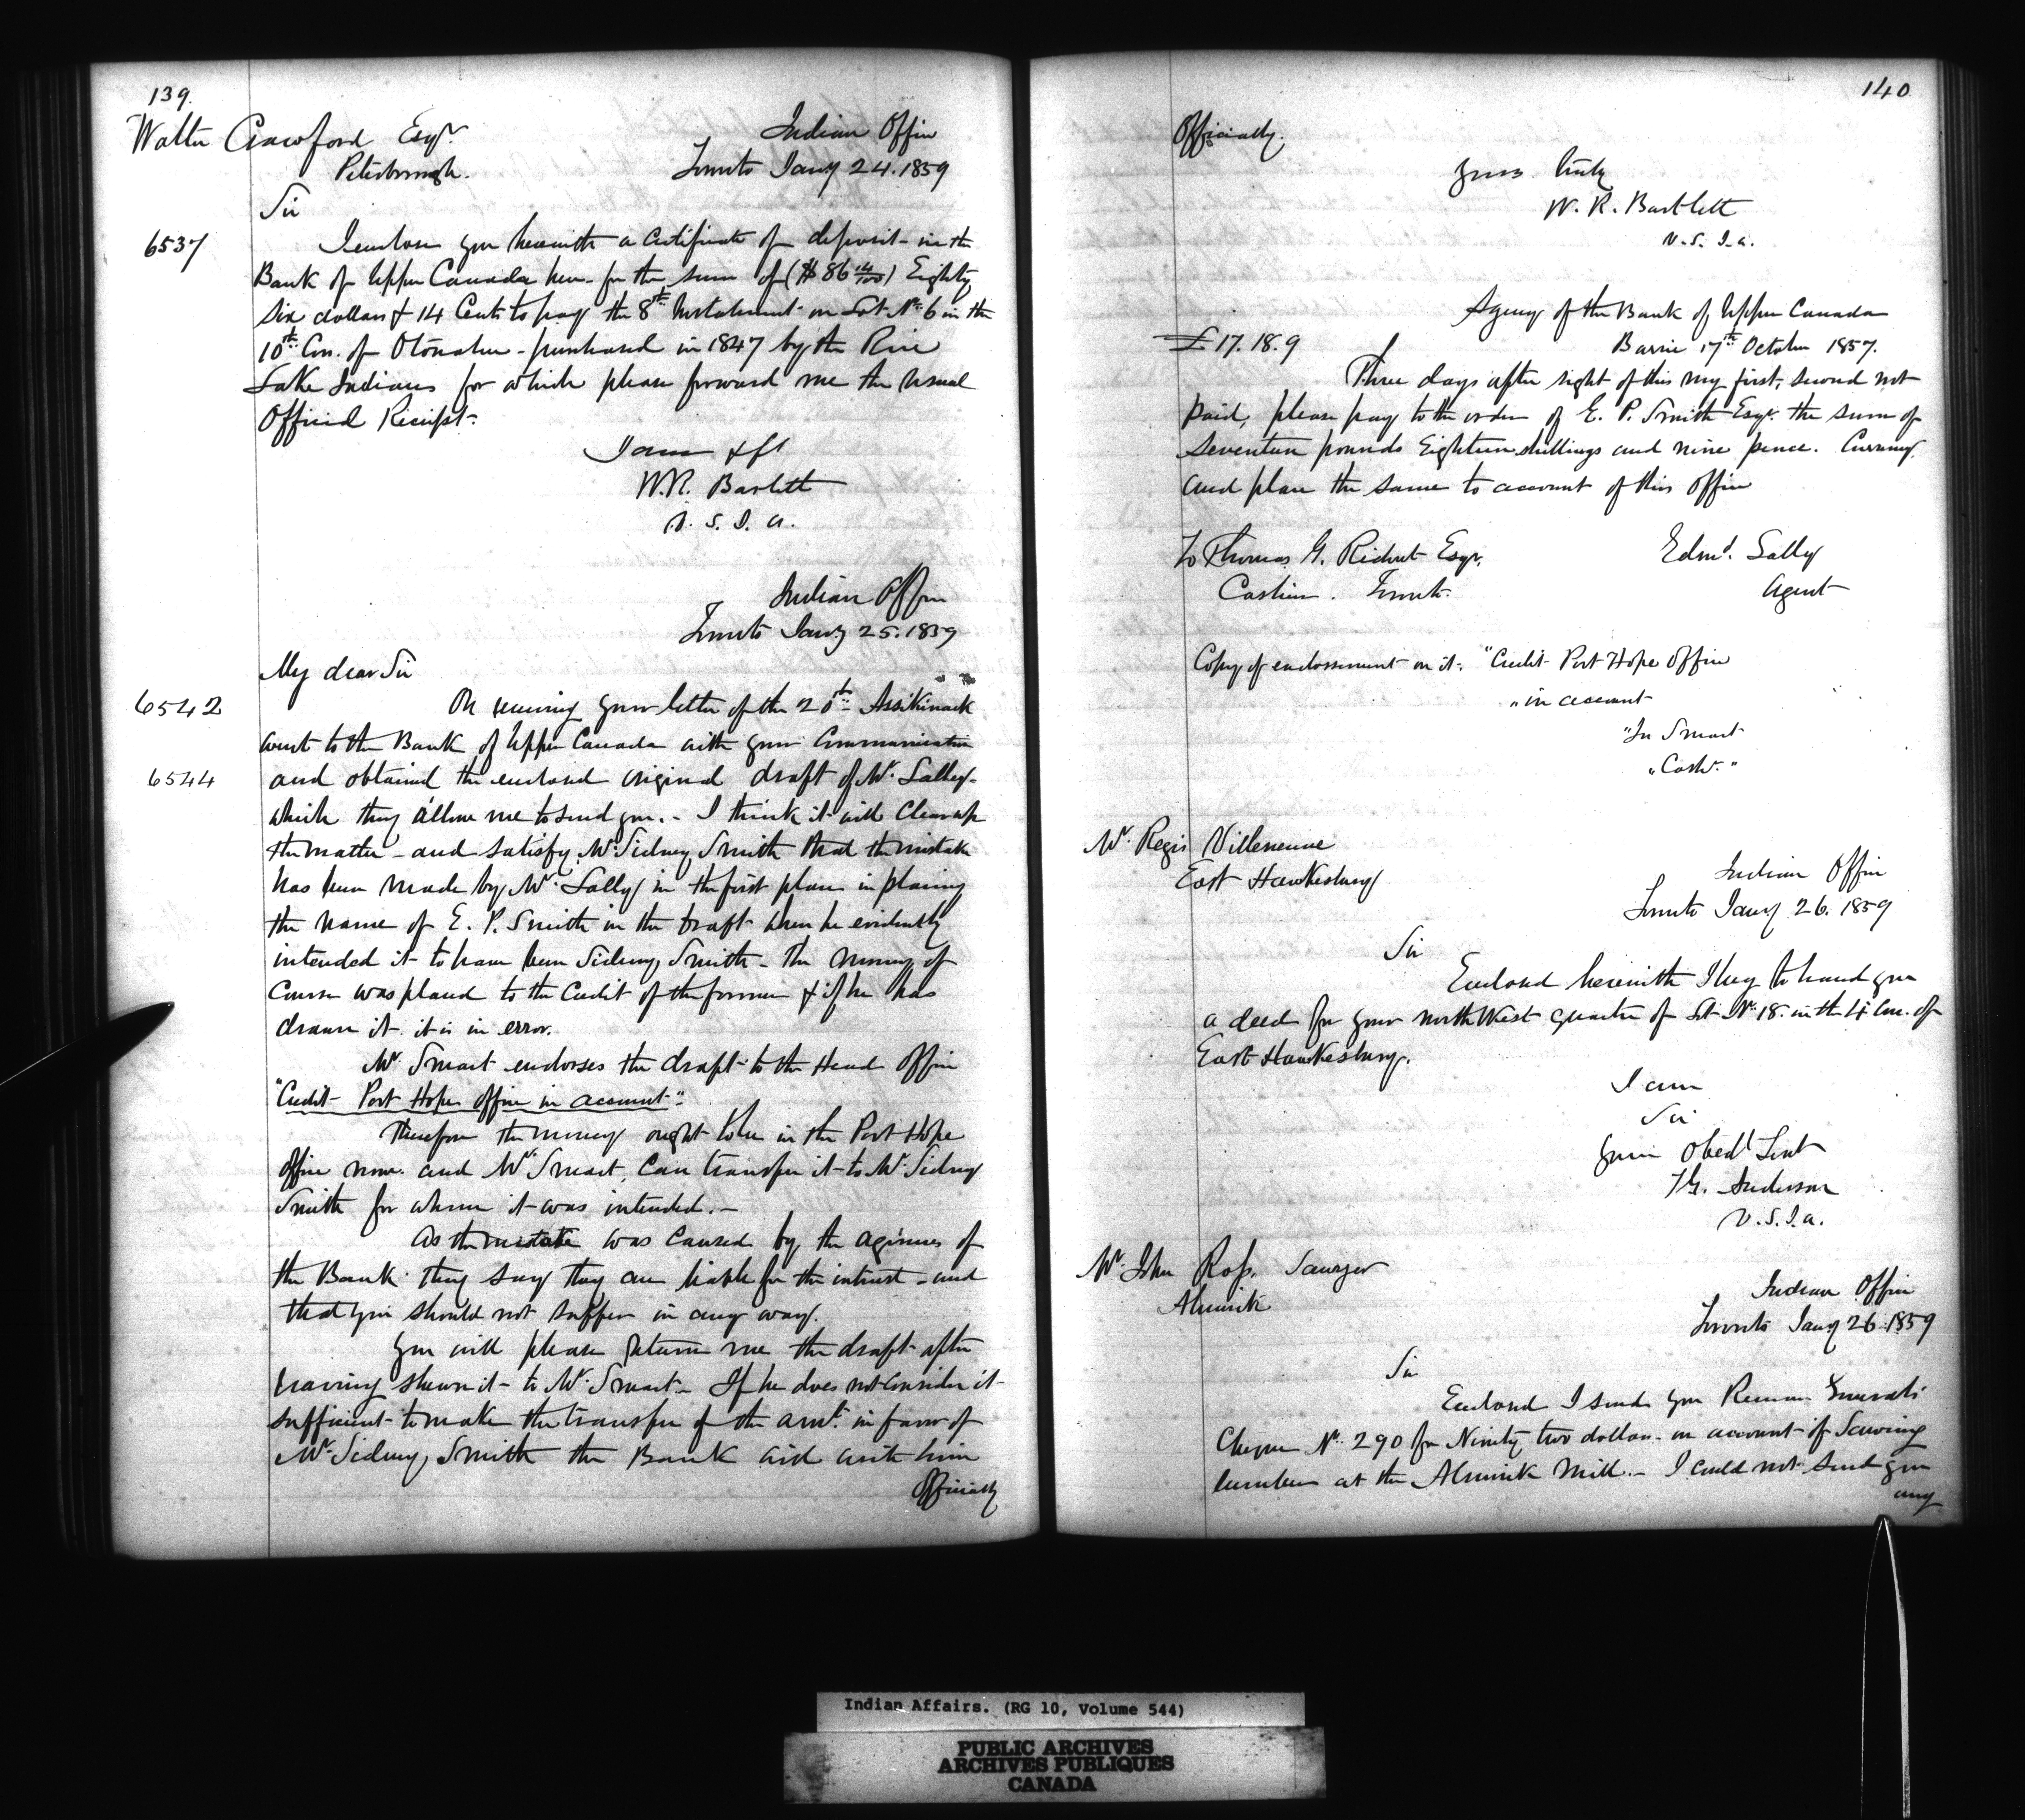 139.
Walter Crawford Esqr.
Peterborough.
Indian Office
Toronto Jany 24. 1859
Sir
6537
I enclose you herewith a Certificate of deposit in the
Bank of Upper Canada here for the sum of ($86 14/100) Eighty
six dollars & 14 Cents to pay the 8th Instalment on Lot No. 6 in the
10th Con. of Otonabee - purchased in 1847 by the Rice
Lake Indians for which please forward me the usual
Official Receipt.
I am &c
W.R. Bartlett
V. S. I. A.
Indian Office
Toronto Jany 25. 1859
My dear Sir
6542
On receiving your letter of the 20th Assikinack
went to the Bank of Upper Canada with your Communication
6544
and obtained the enclosed original draft of Mr. Lally
which they allow me to send you. - I think it will Clear up
the matter - and satisfy Mr. Sidney Smith that the mistake
has been made by Mr. Lally in the first place in placing
the name of E. P. Smith in the draft when he evidently
intended it to have been Sidney Smith - The money of
Course was placed to the Credit of the former & if he has
drawn it it is in error.
Mr. Smart endorses the draft to the Head Office
"Credit Port Hope office in account".
Therefore the money ought to be in the Port Hope
office now. and Mr. Smart, Can transfer it to Mr. Sidney
Smith for whom it was intended. -
As the mistake was Caused by the agencies of
the Bank they say they are liable for the interest - and
that you should not suffer in any way.
You will please return me the draft after
having shewn it to Mr. Smart - If he does not Consider it
sufficient to make the transfer of the amt. in favor of
Mr. Sidney Smith the Bank will write him
Officially
140
Officially.
Yours truly
W. R. Bartlett
V. S. I. A.
Agency of the Bank of Upper Canada
£17. 18. 9
Barrie 17th October 1857.
Three days after sight of this my first, second not
paid, please pay to the order of E. P. Smith Esqr. the sum of
Seventeen pounds Eighteen shillings and nine pence. Currency.
and place the same to account of this Office
To Thomas G. Ridout Esqr.
Cashier. Toronto.
Edmd. Lally
Agent
Copy of endorsement on it. "Credit Port Hope Office
"in account
Smart
"Cashr."
Mr. Regis Villeneuve
East Hawkesbury
Indian Office
Toronto Jany 26. 1859
Sir
Enclosed herewith I beg to hand you
a deed for your North West quarter of Lot No. 18. in the 4 Con. of
East Hawkesbury.
I am
Sir
Your Obedt Servt
T.G. Anderson
V. S. I. A.
Mr. John Ross. Sawyer
Alnwick
Indian Office
Toronto Jany 26. 1859
Sir
Enclosed I send you Receiver Generals
Cheque No. 290 for Ninety two dollars on account of Sawing
lumber at the Alnwick Mill. - I could not send you
any
Indian Affairs. (RG 10, Volume 544)
PUBLIC ARCHIVES
ARCHIVES PUBLIQUES
CANADA